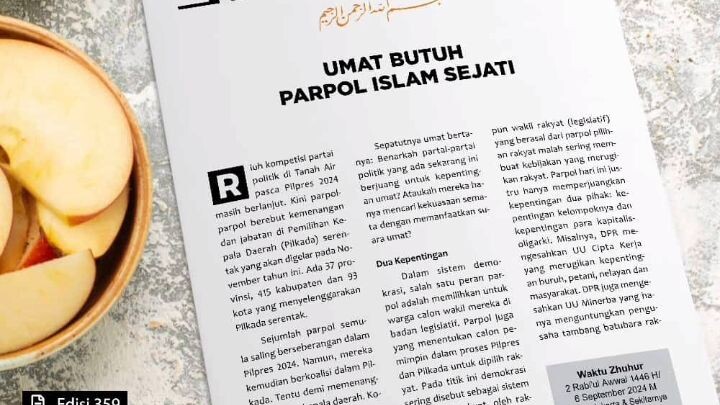 بسم الله الرحمن الرحيم
UMAT BUTUH
PARPOL ISLAM SEJATI
Riuh kompetisi partai
politik di Tanah Air
pasca Pilpres 2024
masih berlanjut. Kini parpol-
parpol berebut kemenangan
dan jabatan di Pemilihan Ke-
pala Daerah (Pilkada) seren-
tak yang akan digelar pada No-
vember tahun ini. Ada 37 pro-
vinsi, 415 kabupaten dan 93
kota yang menyelenggarakan
Pilkada serentak.
Sejumlah parpol semu-
la saling berseberangan dalam
Pilpres 2024. Namun, mereka
kemudian berkoalisi dalam Pil-
kada. Tentu demi memenang-
kepala daerah. Ko-
Sepatutnya umat berta-
nya: Benarkah partai-partai
politik yang ada sekarang ini
berjuang untuk kepenting-
an umat? Ataukah mereka ha-
nya mencari kekuasaan sema-
ta dengan memanfaatkan su-
ara umat?
Dua Kepentingan
Dalam sistem demo-
krasi, salah satu peran par-
pol adalah memilihkan untuk
warga calon wakil mereka di
badan legislatif. Parpol juga
yang menentukan calon pe-
mimpin dalam proses Pilpres
dan Pilkada untuk dipilih rak-
yat. Pada titik ini demokrasi
sering disebut sebagai sistem
oleh rak-
pun wakil rakyat (legislatif)
yang berasal dari parpol pilih-
an rakyat malah sering mem-
buat kebijakan yang merugi-
kan rakyat. Parpol hari ini jus-
tru hanya memperjuangkan
kepentingan dua pihak: ke-
pentingan kelompoknya dan
kepentingan para kapitalis-
oligarki. Misalnya, DPR me-
ngesahkan UU Cipta Kerja
yang merugikan kepenting-
an buruh, petani, nelayan dan
masyarakat. DPR juga menge-
sahkan UU Minerba yang ha-
nya menguntungkan pengu-
saha tambang batubara rak-
Waktu Zhuhur
2 Rabi'ul Awwal 1446 H/
6 September 2024 M
& Sekitarnya
Edisi 359